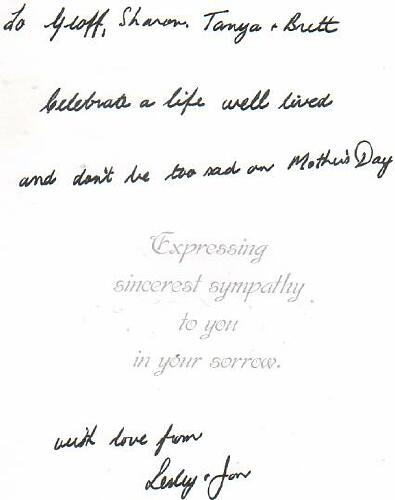 To Geoff, Sharon, Tanya + Brett
Celebrate a life well lived
and don't be too sad on Mother's Day
Expressing
sincerest sympathy
to you
in your sorrow.
with love from
Lesley + Jon